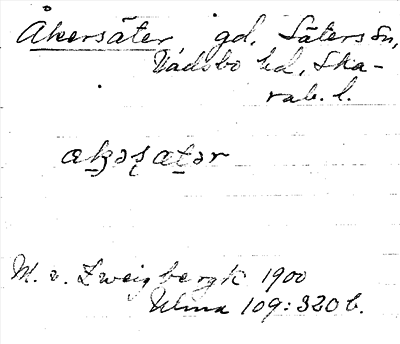 Åkersäter gd, Säters sn,
Vadsbo hd, Ska-
rab. l.
M. v. Zweigbergk 1900
Ulma 109:320 b.